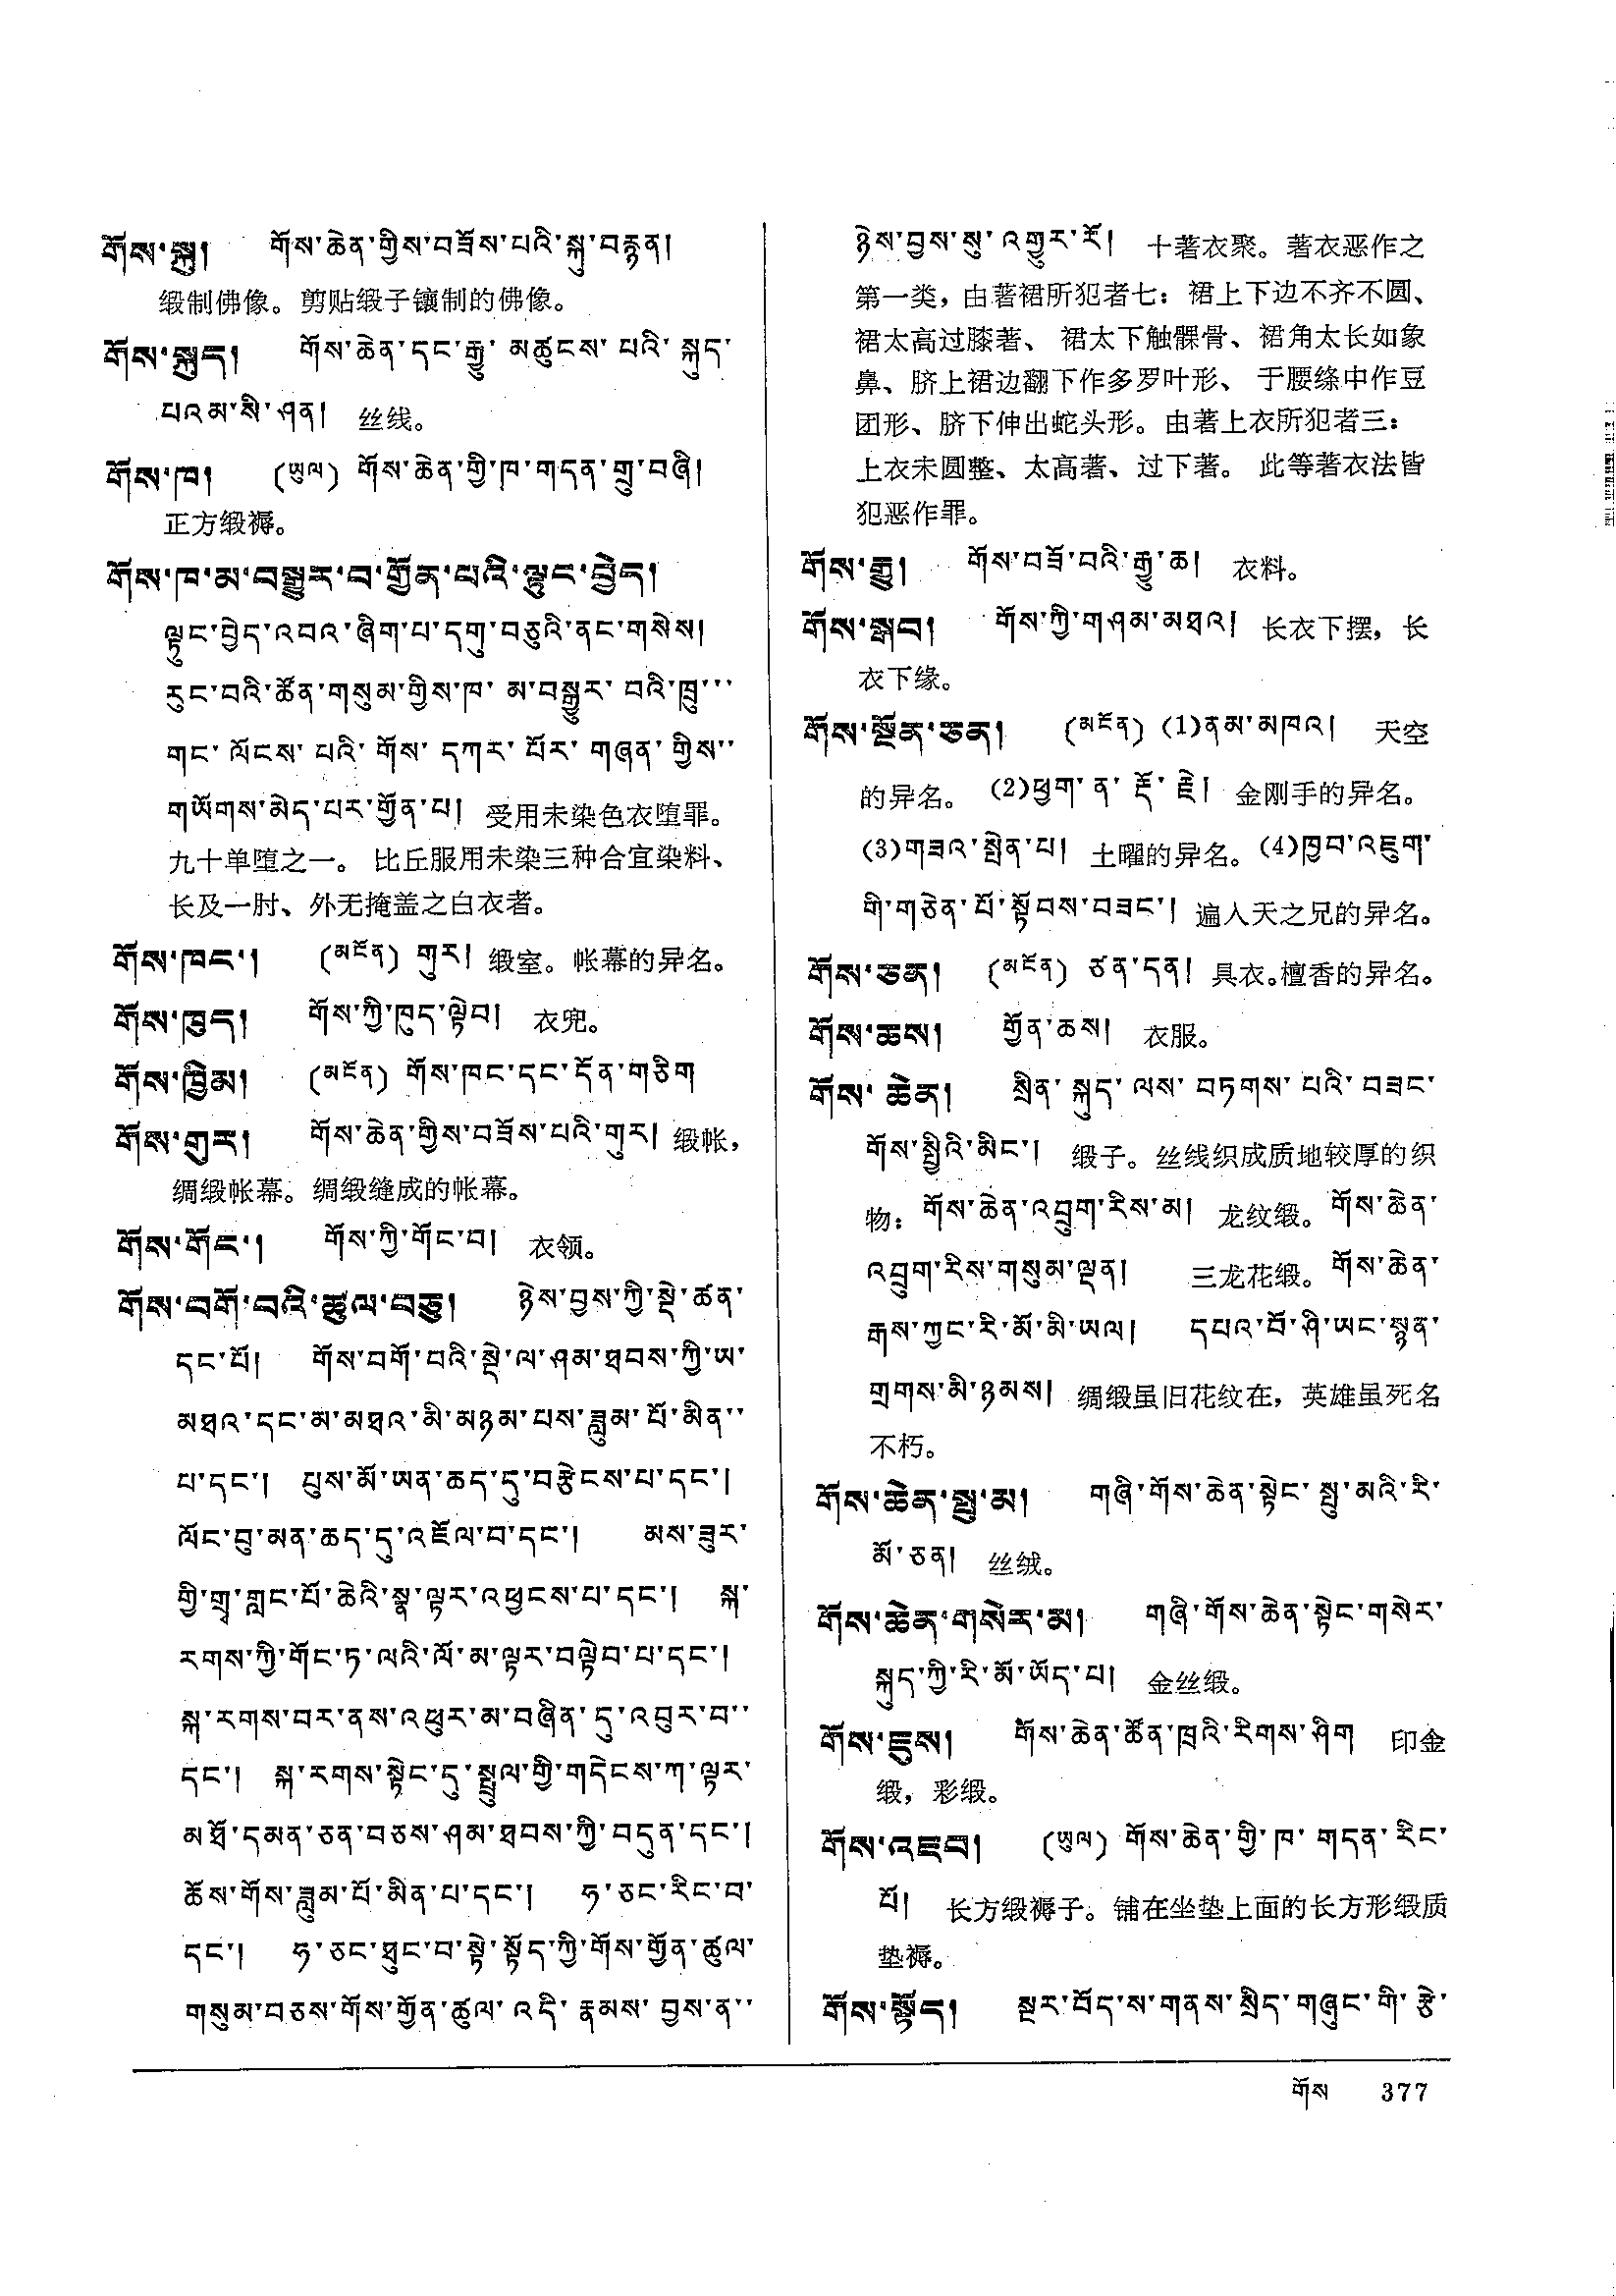 གོས་སྐུ། གོས་ཆེན་གྱིས་བཟོས་པའི་སྐུ་བརྙན།
缎制佛像。剪贴缎子镶制的佛像。
གོས་སྐུད། གོས་ཆེན་དང་རྒྱུ་ མཚུངས་ པའི་ སྐུད་
པའམ་སི་ཤན། 丝线。
གོས་ཁ། (ཡུལ) གོས་ཆེན་གྱི་ཁ་གདན་གྲུ་བཞི།
正方缎褥。
གོས་ཁ་མ་བསྒྱུར་བ་གྱོན་པའི་ལྟུང་བྱེད།
ལྟུང་བྱེད་འབའ་ཞིག་པ་དགུ་བཅུའི་ནང་གསེས།
རུང་བའི་ཚོན་གསུམ་གྱིས་ཁ་ མ་བསྒྱུར་ བའི་ཁྲུ་་་
གང་ ལོངས་ པའི་ གོས་ དཀར་ པོར་ གཞན་ གྱིས་་
གཡོགས་མེད་པར་གྱོན་པ། 受用未染色衣堕罪。
九十单堕之一。 比丘服用未染三种合宜染料、
长及一肘、外无掩盖之白衣者。
གོས་ཁང་། (མངོན) གུར། 缎室。帐幕的异名。
གོས་ཁུད། གོས་ཀྱི་ཁུད་ལྟེབ། 衣兜。
གོས་ཁྱིམ། (མངོན) གོས་ཁང་དང་དོན་གཅིག
གོས་གུར། གོས་ཆེན་གྱིས་བཟོས་པའི་གུར། 缎帐，
绸缎帐幕。绸缎缝成的帐幕。
གོས་གོང་། གོས་ཀྱི་གོང་བ། 衣领。
གོས་བགོ་བའི་ཚུལ་བཅུ། ཉེས་བྱས་ཀྱི་སྡེ་ཚན་
དང་པོ། གོས་བགོ་བའི་སྡེ་ལ་ཤམ་ཐབས་ཀྱི་ཡ་
མཐའ་དང་མ་མཐའ་མི་མཉམ་པས་ཟླུམ་པོ་མིན་་
པ་དང་། པུས་མོ་ཡན་ཆད་དུ་བརྩེངས་པ་དང་།
ལོང་བུ་མན་ཆད་དུ་འཇོལ་བ་དང་། མས་ཟུར་
གྱི་གྲྭ་གླང་པོ་ཆེའི་སྣ་ལྟར་འཕྱངས་པ་དང་། སྐ་
རགས་ཀྱི་གོང་ཏ་ལའི་ལོ་མ་ལྟར་བལྟེབ་པ་དང་།
སྐ་རགས་བར་ནས་འཕུར་མ་བཞིན་དུ་འབུར་བ་་
དང་། སྐ་རགས་སྟེང་དུ་སྦྲུལ་གྱི་གདེངས་ཀ་ལྟར་
མཐོ་དམན་ཅན་བཅས་ཤམ་ཐབས་ཀྱི་བདུན་དང་།
ཆོས་གོས་ཟླུམ་པོ་མིན་པ་དང་། ཧ་ཅང་རིང་བ་
དང་། ཧ་ཅང་ཐུང་བ་སྟེ་སྟོད་ཀྱི་གོས་གྱོན་ཚུལ་
གསུམ་བཅས་གོས་གྱོན་ཚུལ་ འདི་ རྣམས་ བྱས་ན་་
ཉེས་བྱས་སུ་ འགྱུར་རོ། 十著衣聚。著衣恶作之
第一类，由著裙所犯者七：裙上下边不齐不圆、
裙太高过膝著、 裙太下触髁骨、裙角太长如象
鼻、脐上裙边翻下作多罗叶形、 于腰绦中作豆
团形、脐下伸出蛇头形。由著上衣所犯者三：
上衣未圆整、太高著、过下著。 此等著衣法皆
犯恶作罪。
གོས་རྒྱུ། གོས་བཟོ་བའི་རྒྱུ་ཆ། 衣料。
གོས་སྒབ། གོས་ཀྱི་གཤམ་མཐའ། 长衣下摆，长
衣下缘。
གོས་སྔོན་ཅན། (མངོན) (1)ནམ་མཁའ། 天空
的异名。 (2)ཕྱག་ ན་ རྡོ་ རྗེ། 金刚手的异名。
(3)གཟའ་སྤེན་པ། 土曜的异名。(4)ཁྱབ་འཇུག་
གི་གཅེན་པོ་སྟོབས་བཟང་། 遍入天之兄的异名。
གོས་ཅན། (མངོན) ཙན་དན། 具衣。檀香的异名。
གོས་ཆས། གྱོན་ཆས། 衣服。
གོས་ ཆེན། སྲིན་ སྐུད་ ལས་ བཏགས་ པའི་ བཟང་
གོས་སྤྱིའི་མིང་། 缎子。丝线织成质地较厚的织
物：གོས་ཆེན་འབྲུག་རིས་མ། 龙纹缎。གོས་ཆེན་
འབྲུག་རིས་གསུམ་ལྡན། 三龙花缎。གོས་ཆེན་
རྒས་ཀྱང་རི་མོ་མི་ཡལ། དཔའ་བོ་ཤི་ཡང་སྙན་
གྲགས་མི་ཉམས། 绸缎虽旧花纹在，英雄虽死名
不朽。
གོས་ཆེན་སྤུ་མ། གཞི་གོས་ཆེན་སྟེང་ སྤུ་མའི་རི་
མོ་ཅན། 丝绒。
གོས་ཆེན་གསེར་མ། གཞི་གོས་ཆེན་སྟེང་གསེར་
སྐུད་ཀྱི་རི་མོ་ཡོད་པ། 金丝缎。
གོས་ཇུས། གོས་ཆེན་ཚོན་ཁྲའི་རིགས་ཤིག 印金
缎，彩缎。
གོས་འཇབ། (ཡུལ) གོས་ཆེན་གྱི་ཁ་ གདན་རིང་
པོ། 长方缎褥子。铺在坐垫上面的长方形缎质
垫褥。
གོས་སྟོད། སྔར་བོད་ས་གནས་སྲིད་གཞུང་གི་ རྩེ་
གོས 377